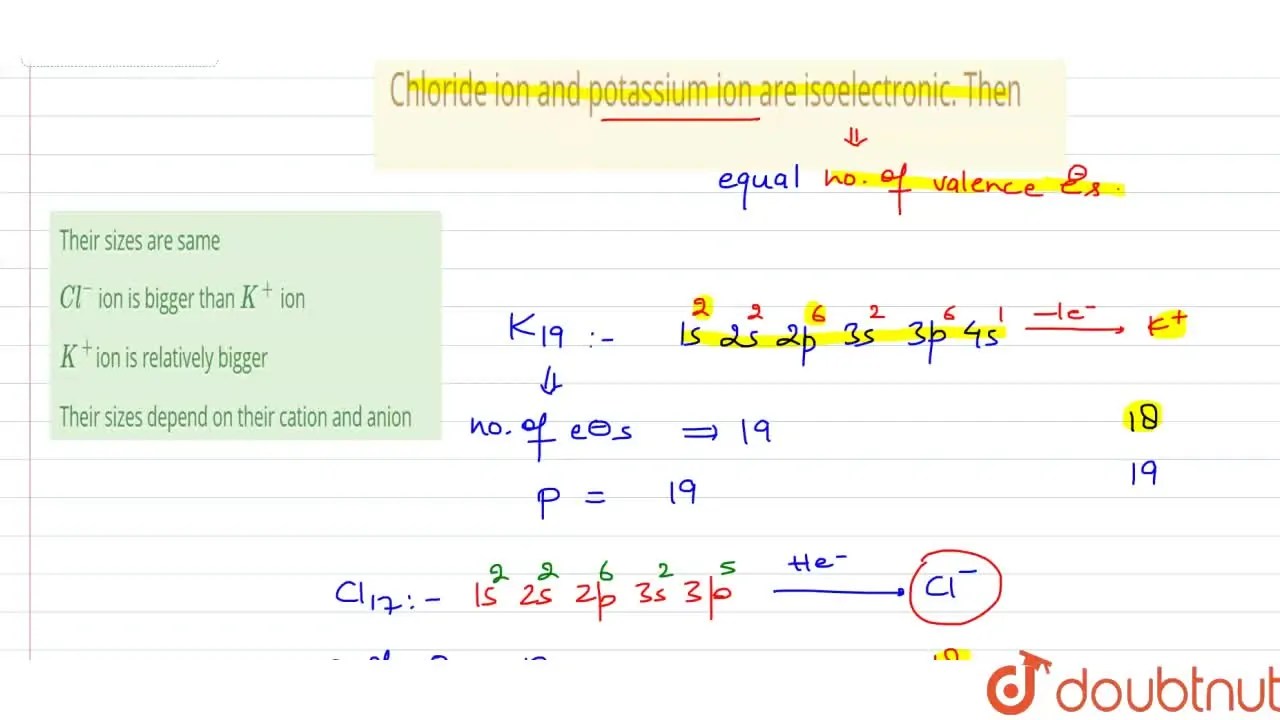 Chloride ion and potassium ion are isoelectronic. Then
⇓
equal no. of valence e⊖s.
Their sizes are same
Cl⁻ ion is bigger than K⁺ ion
K⁺ ion is relatively bigger
Their sizes depend on their cation and anion
K₁₉ :- 1s² 2s² 2p⁶ 3s² 3p⁶ 4s¹ —1e⁻→ K⁺
⇓
no. of e⊖s ⇒ 19 18
p = 19 19
Cl₁₇ :- 1s² 2s² 2p⁶ 3s² 3p⁵ +1e⁻→ Cl⁻
doubtnut